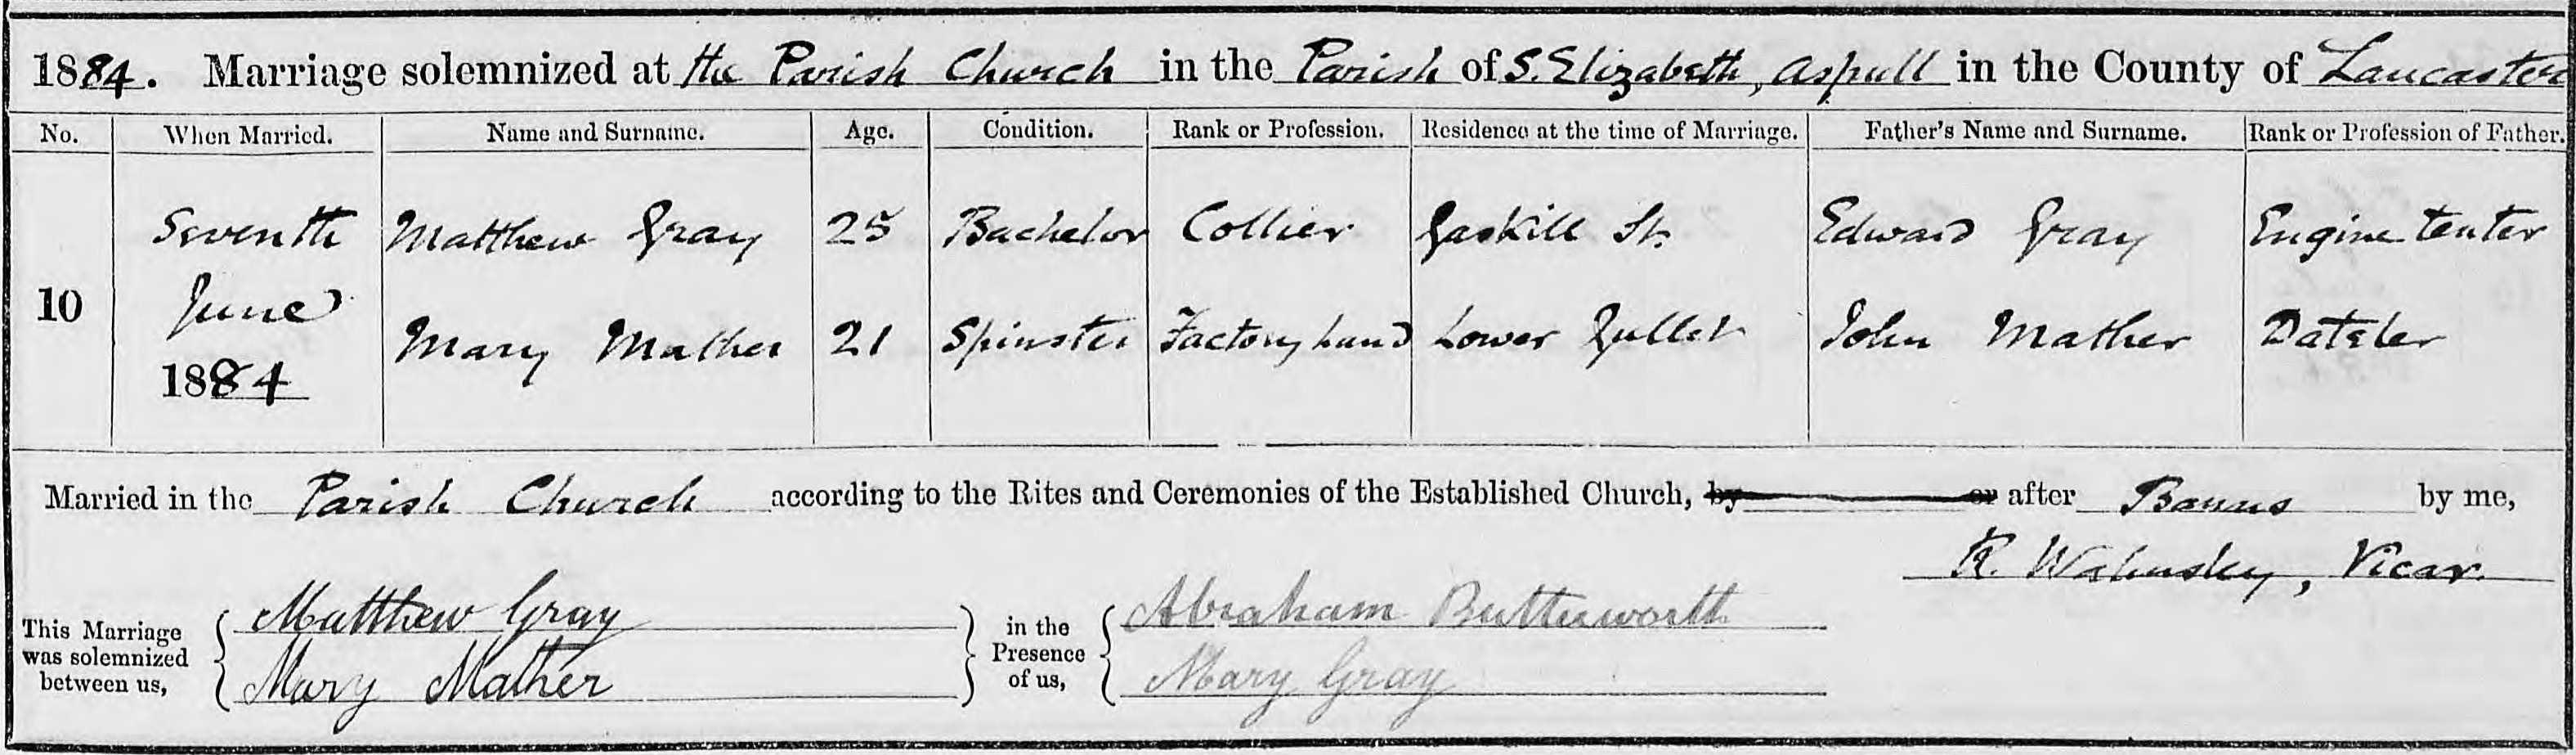 1884. Marriage solemnized at the Parish Church in the Parish of S. Elizabeth, Aspull in the County of Lancaster
No. When Married. Name and Surname. Age. Condition. Rank or Profession. Residence at the time of Marriage. Father's Name and Surname. Rank or Profession of Father.
Seventh Matthew Gray 25 Bachelor Collier Gaskill St. Edward Gray Engine tenter
10 June
Mary Mather 21 Spinster Factory hand Lower Gullet John Mather Dataler
1884
Married in the Parish Church according to the Rites and Ceremonies of the Established Church, by or after Banns by me,
R. Vicar.
This Marriage was solemnized between us, Matthew Gray
Mary Mather
in the Presence of us, Abraham Butterworth
Mary Gray